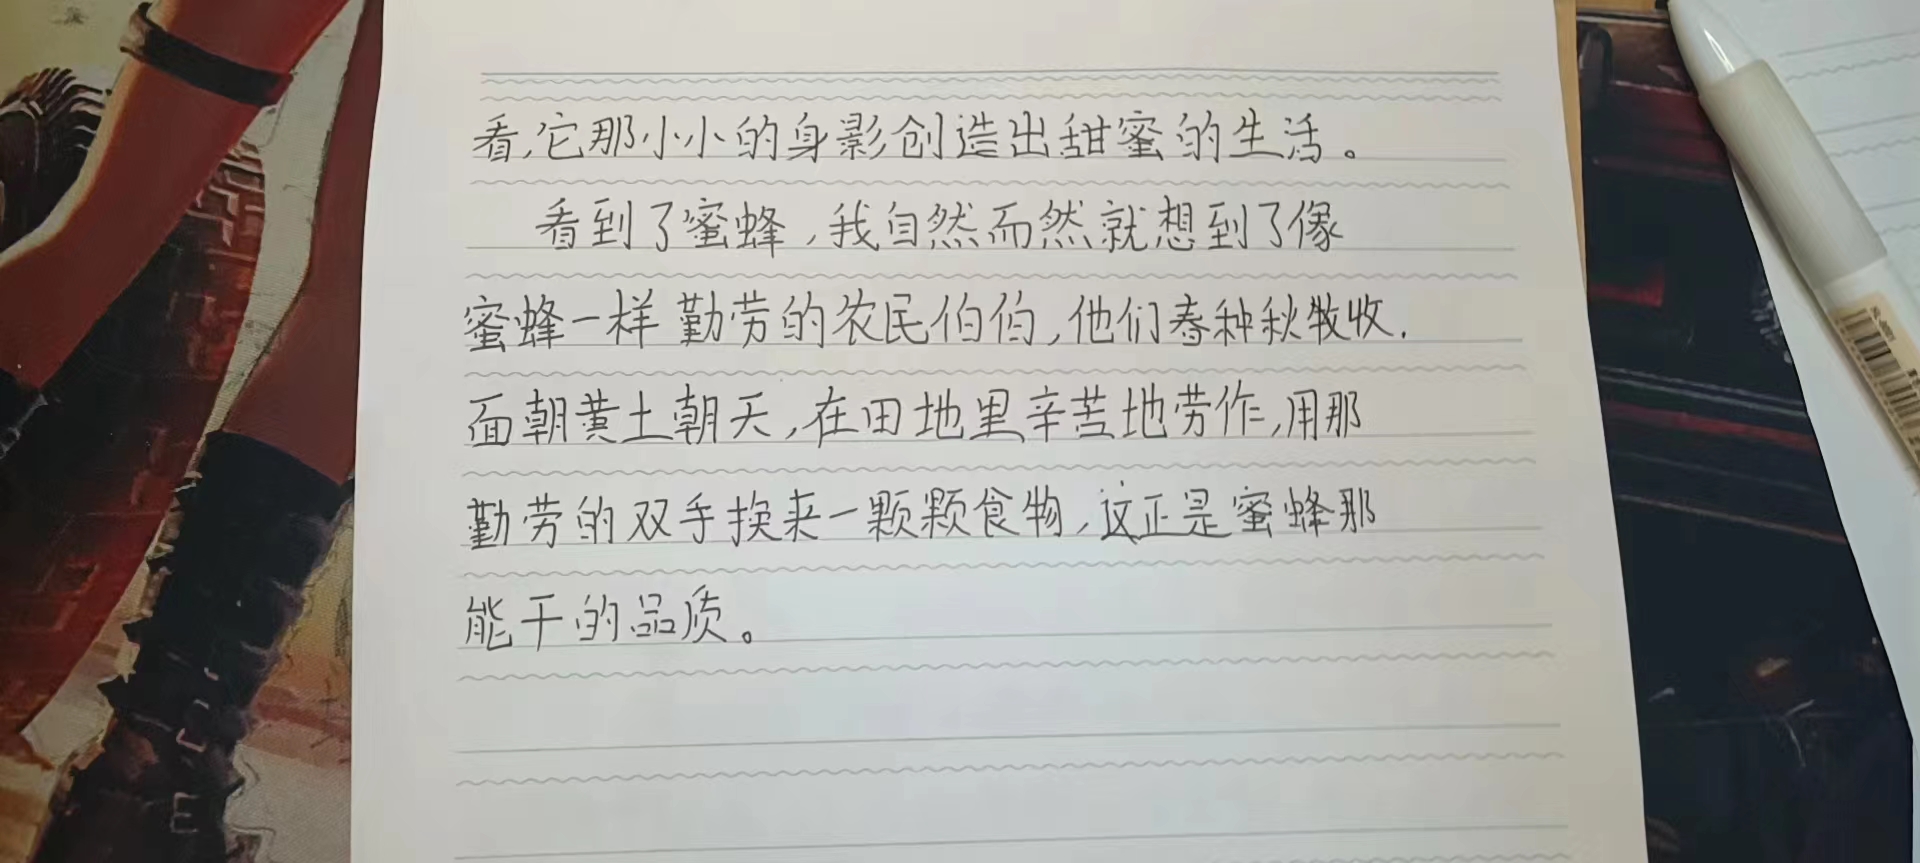 看,它那小小的身影创造出甜蜜的生活。
看到了蜜蜂,我自然而然就想到了像
蜜蜂一样勤劳的农民伯伯,他们春种秋牧收.
面朝黄土朝天,在田地里辛苦地劳作,用那
勤劳的双手换来一颗颗食物,这正是蜜蜂那
能干的品质。